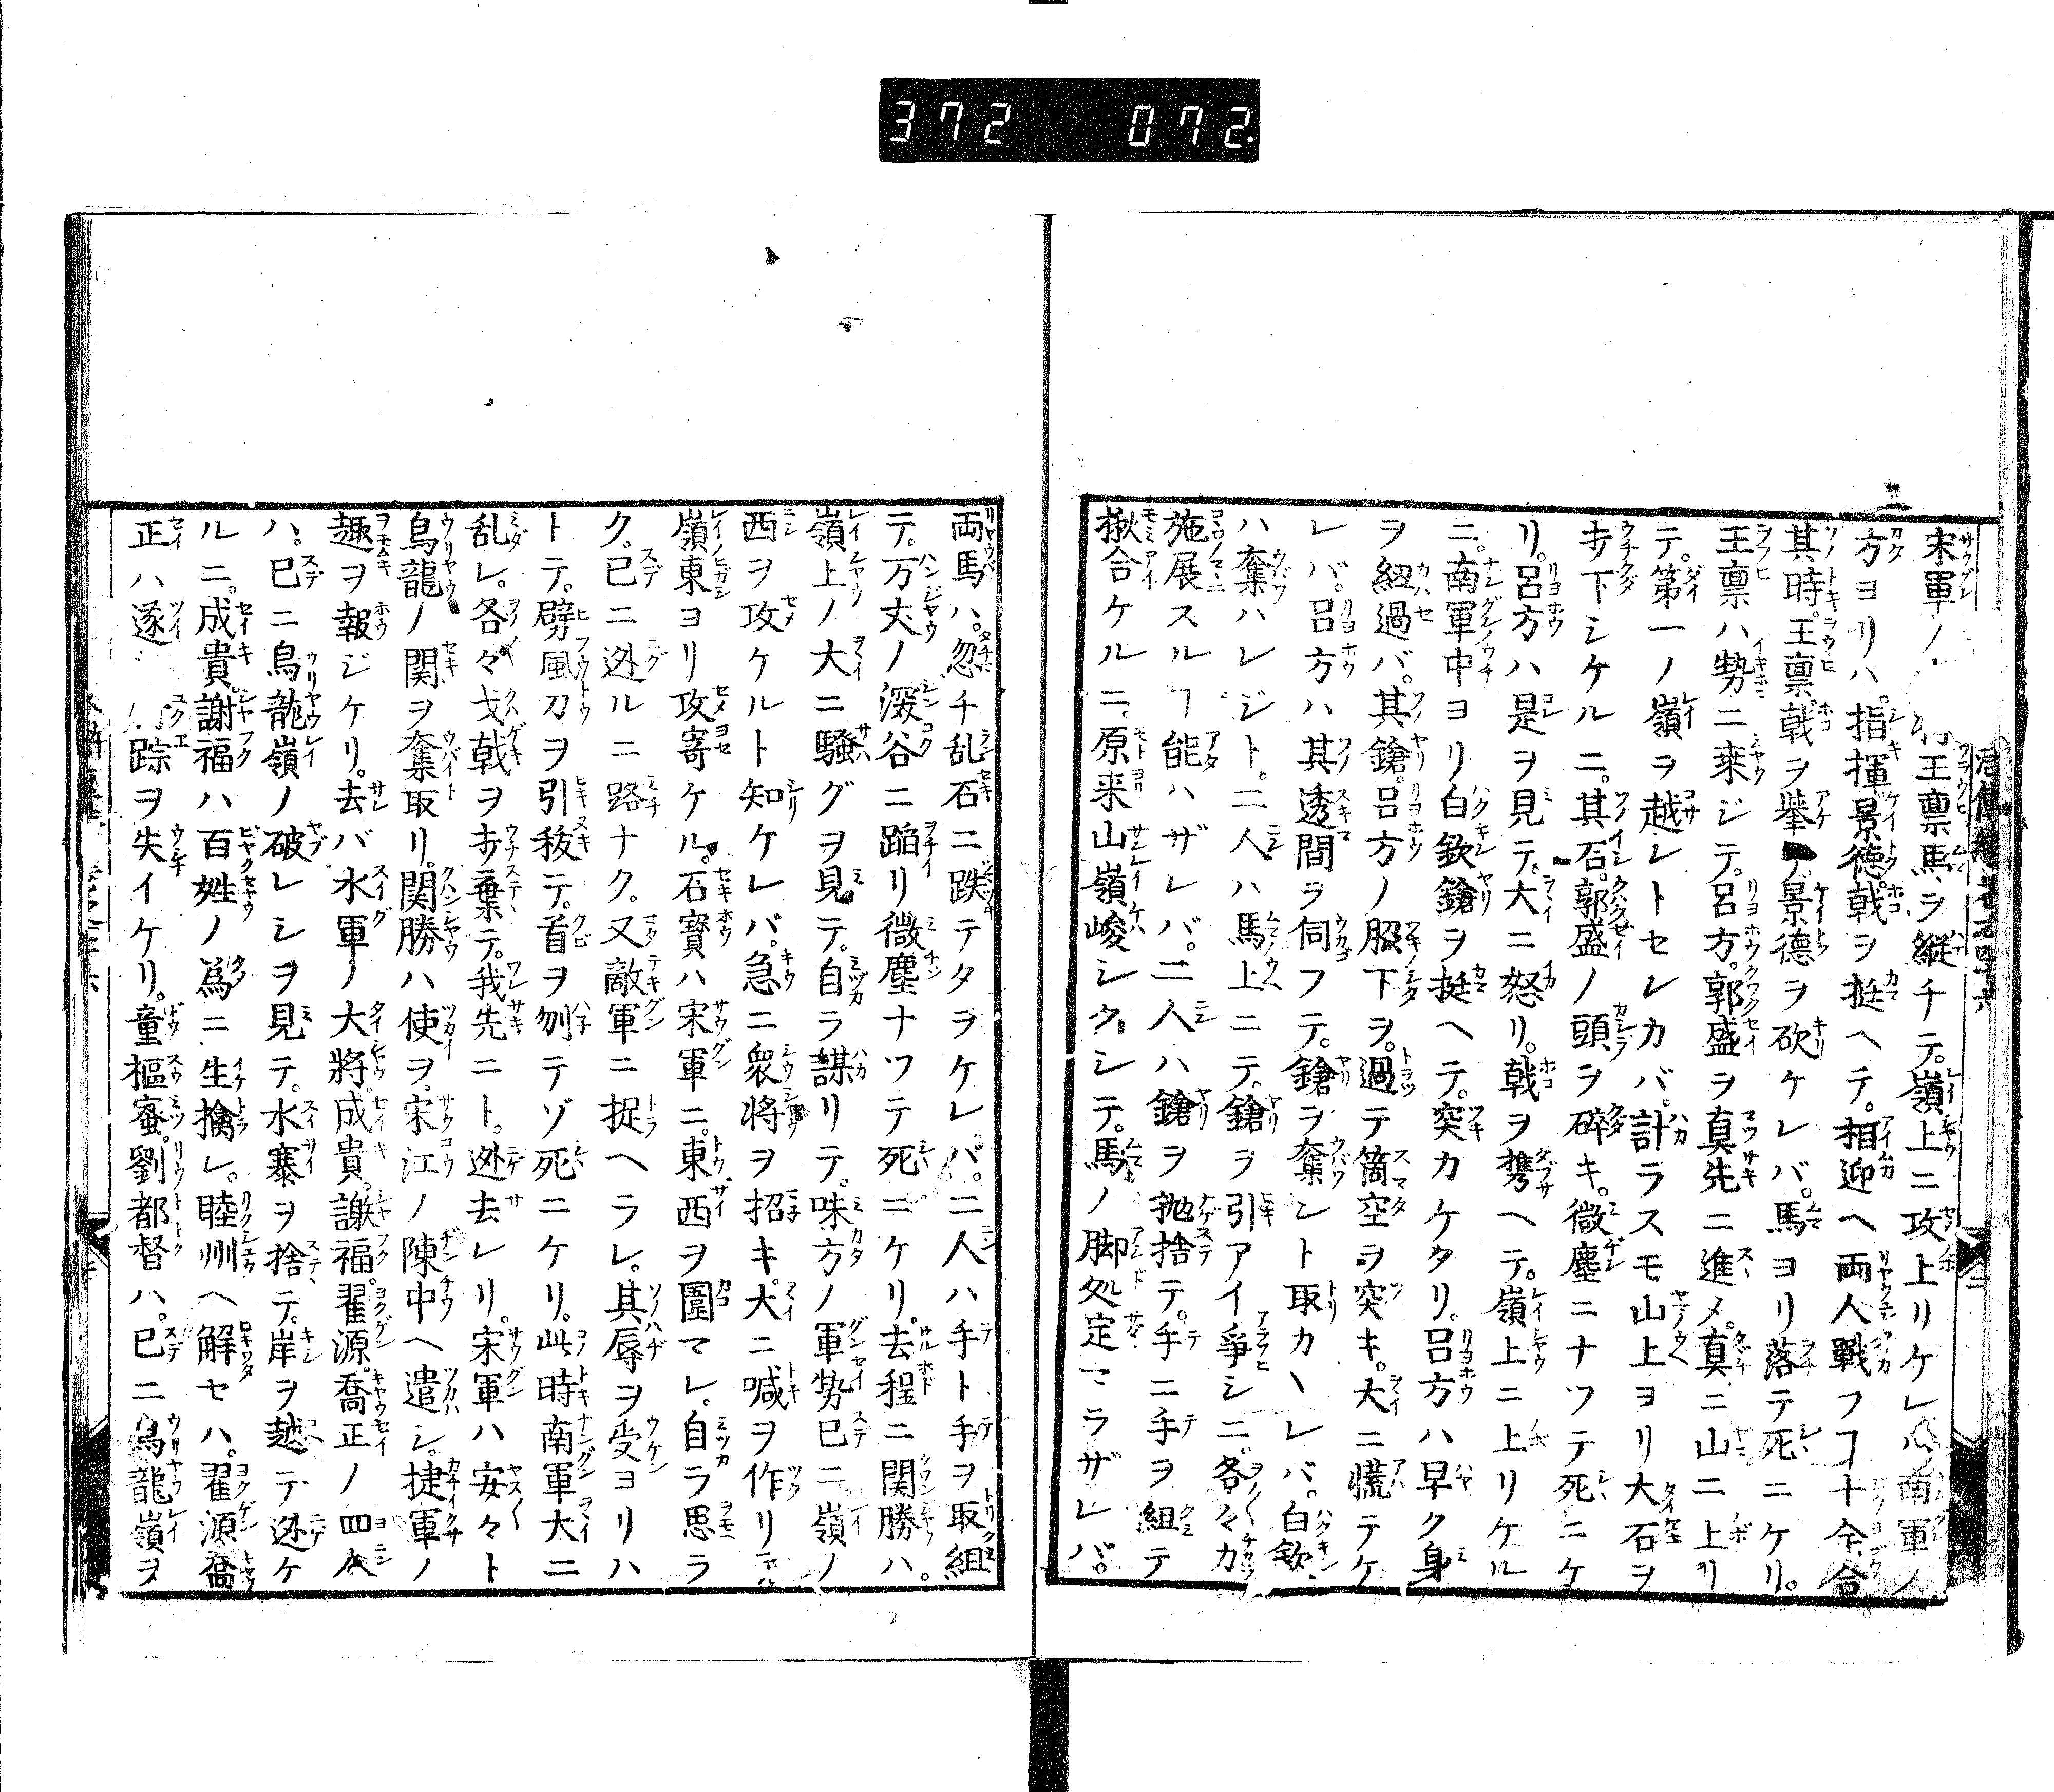 372 072
宋軍ノ 王稟馬ヲ縦チテ。嶺上ニ攻上リケレハ南軍ノ
方ヨリハ。指揮景德。戟ヲ挺ヘテ。相迎ヘ両人戰フヿ十余合
其時。王稟。戟ヲ擧テ景德ヲ砍ケレバ。馬ヨリ落テ死ニケリ。
王稟ハ勢ニ乗ジテ。呂方。郭盛ヲ真先ニ進メ。真ニ山ニ上リ
テ。第一ノ嶺ヲ越レトセレカバ。計ラスモ山上ヨリ大石ヲ
下シケルニ。其石。郭盛ノ頭ヲ碎キ。微塵ニナツテ死ニケ
リ。呂方ハ是ヲ見テ。大ニ怒リ。戟ヲ携ヘテ。嶺上ニ上リケル
ニ。南軍中ヨリ白欽鎗ヲ挺ヘテ。突カケタリ。呂方ハ早ク身
ヲ紐過バ。其鎗。呂方ノ脇下ヲ。過テ筒空ヲ突キ。大ニ慌テケ
レバ。呂方ハ其透間ヲ伺フテ。鎗ヲ奪ント取カヽレバ。白欽
ハ奪ハレジト。二人ハ馬上ニテ。鎗ヲ引アイ爭シニ。各々力
施展スルヿ能ハザレバ。二人ハ鎗ヲ抛捨テ。手ニ手ヲ組テ
揪合ケルニ。原来山嶺峻シクシテ。馬ノ脚処定マラザレバ。
両馬ハ。忽チ乱石ニ跌テタヲケレバ。二人ハ手ト手ヲ取組
テ。万丈ノ深谷ニ蹈リ微塵ナツテ死ニケリ。去程ニ関勝ハ。
嶺上ノ大ニ騒グヲ見テ。自ラ謀リテ。味方ノ軍勢已ニ嶺ノ
西ヲ攻ケルト知ケレバ。急ニ衆将ヲ招キ。大ニ喊ヲ作リテ
嶺東ヨリ攻寄ケル。石寳ハ宋軍ニ。東西ヲ圍マレ。自ラ思ラ
ク。已ニ迯ルニ路ナク。又敵軍ニ捉ヘラレ。其辱ヲ受ヨリハ
トテ。劈風刀ヲ引稜テ。首ヲ刎テゾ死ニケリ。此時南軍大ニ
乱レ。各々戈戟ヲ棄テ。我先ニト。迯去レリ。宋軍ハ安々ト
烏龍ノ関ヲ奪取リ。関勝ハ使ヲ。宋江ノ陳中ヘ遣シ。捷軍ノ
趣ヲ報ジケリ。去バ水軍ノ大將。成貴。謝福。翟源。喬正ノ四人
ハ。已ニ烏龍嶺ノ破レシヲ見テ。水寨ヲ捨テ。岸ヲ越テ迯ケ
ルニ。成貴謝福ハ百姓ノ爲ニ生擒レ。睦州ヘ解セハ。翟源喬
正ハ遂 踪ヲ失イケリ。童樞蜜。劉都督ハ。已ニ烏龍嶺ヲ